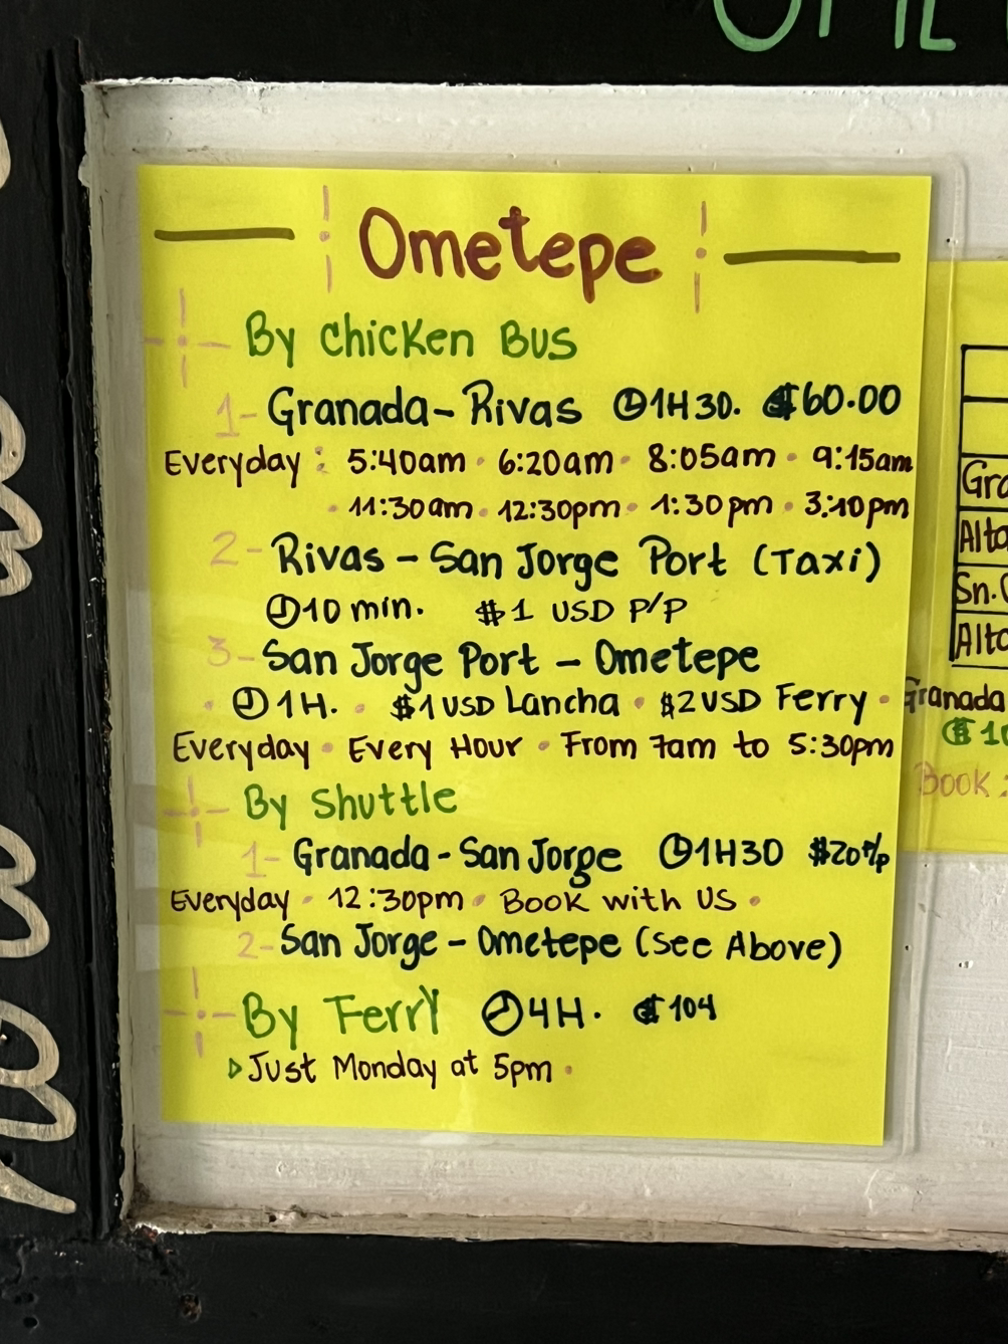 Ometepe
By Chicken Bus
1- Granada - Rivas 1H30. ₡60.00
Everyday : 5:40am · 6:20am · 8:05am · 9:15am
· 11:30am · 12:30pm · 1:30pm · 3:10pm
2- Rivas - San Jorge Port (Taxi)
10 min. $1 USD P/P
3- San Jorge Port - Ometepe
· 1H. · $1 USD Lancha · $2 USD Ferry ·
Everyday · Every Hour · From 7am to 5:30pm
By Shuttle
1- Granada - San Jorge 1H30 $20 P/p
Everyday · 12:30pm · Book with US ·
2- San Jorge - Ometepe (See Above)
By Ferry 4H. ₡104
Just Monday at 5pm ·
Granada
Book: